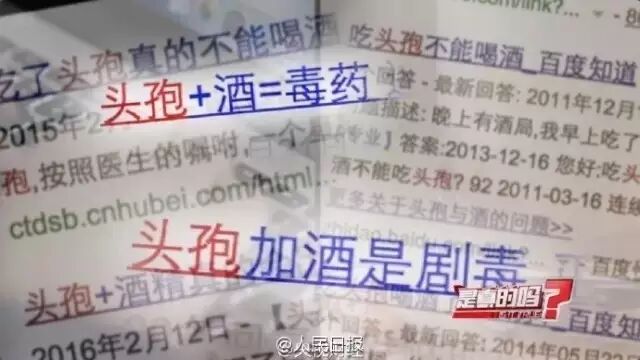 com/link?...
吃了头孢真的不能喝酒
吃头孢不能喝酒_百度知道
头孢+酒=毒药
回答 - 最新回答: 2011年12月
描述: 晚上有酒局,我早上吃了
2015年2
专业】答案:2013-12-16 您好:吃
孢,按照医生的嘱咐,一个
酒不能吃头孢? 92 2011-03-16 连续
ctdsb.cnhubei.com/html...
更多关于头孢与酒的问题>>
zhidao.baidu.com/link?...
头孢加酒是剧毒
百度
头孢+酒精真的
是真的吗?
2016年2月12日 - 【头孢
最新回答: 2014年05月
@人民日报